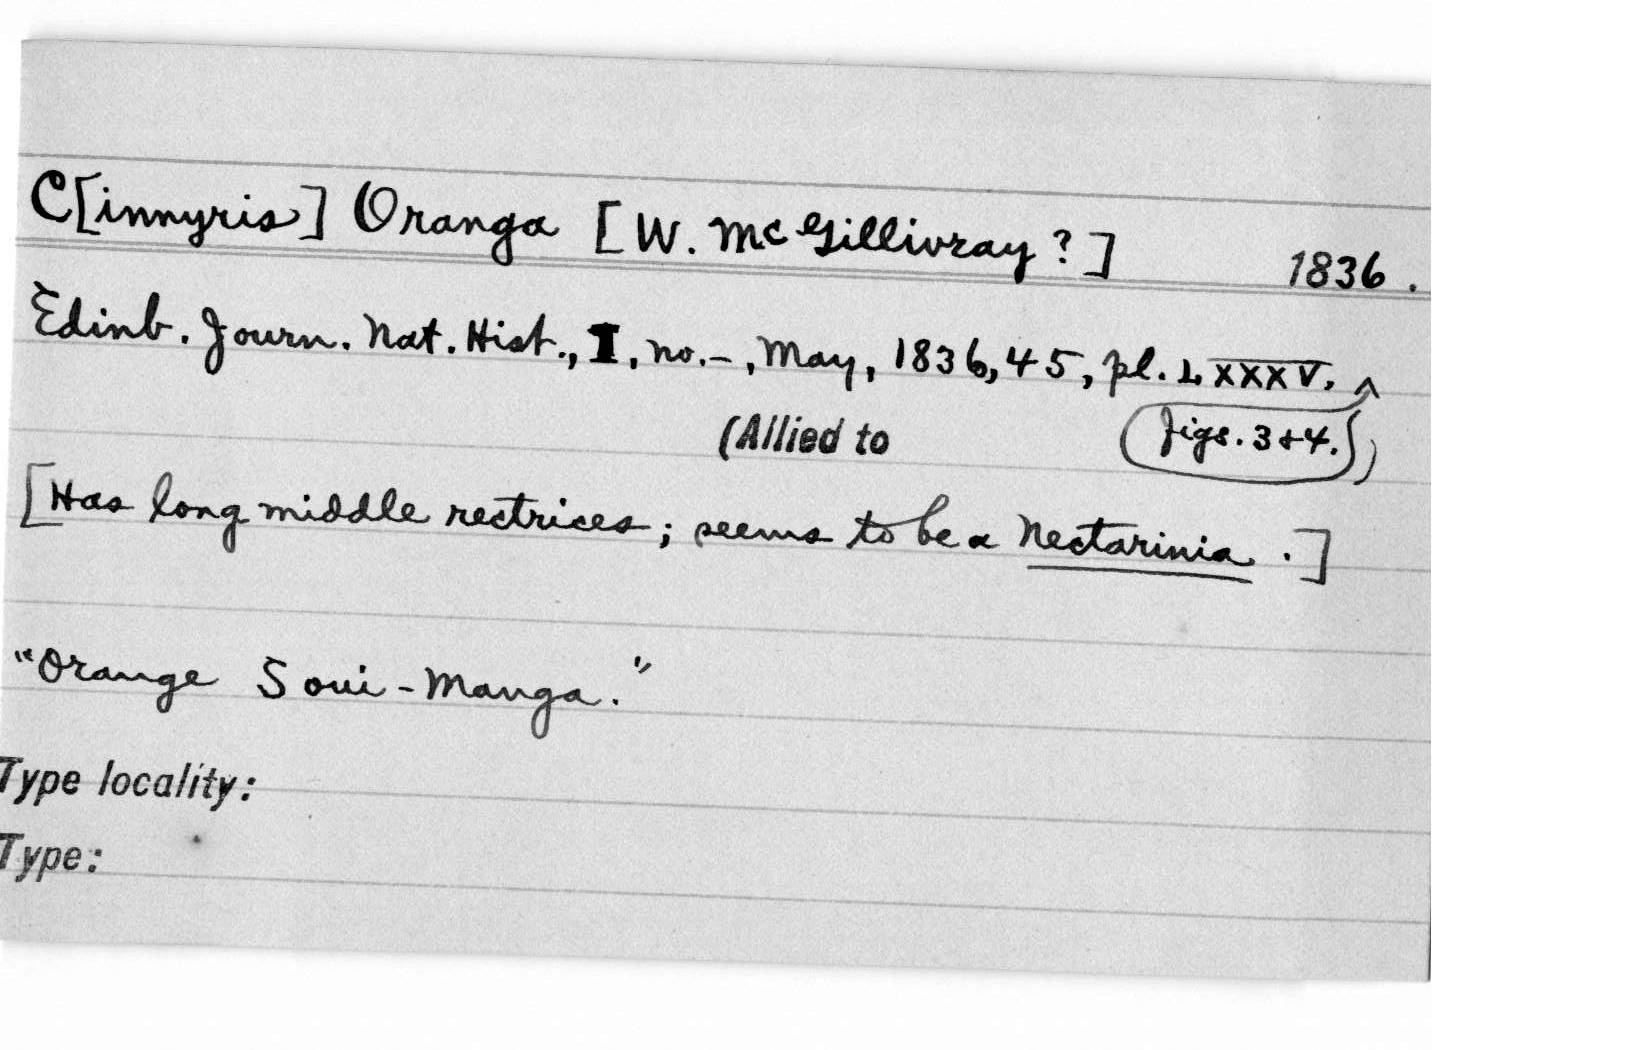 C[innyris] Oranga [W. McGillivray?] 1836.
Edinb. Journ. Nat. Hist., I, no. –, May, 1836, 45, pl. LXXXV, ^
(Allied to figs. 3 & 4. )
[Has long middle rectrices; seems to be a Nectarinia.]
"Orange Soui-Manga."
Type locality:
Type: